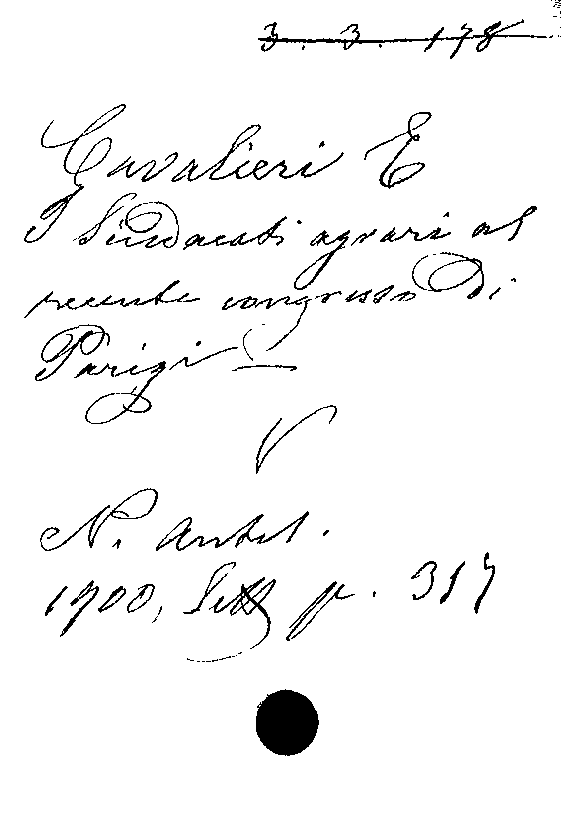 3. 3. 178
Cavalieri E
I Sindacati agrari al
recente congresso di
Parigi —
V
N. Antol.
1900, Sett p. 317